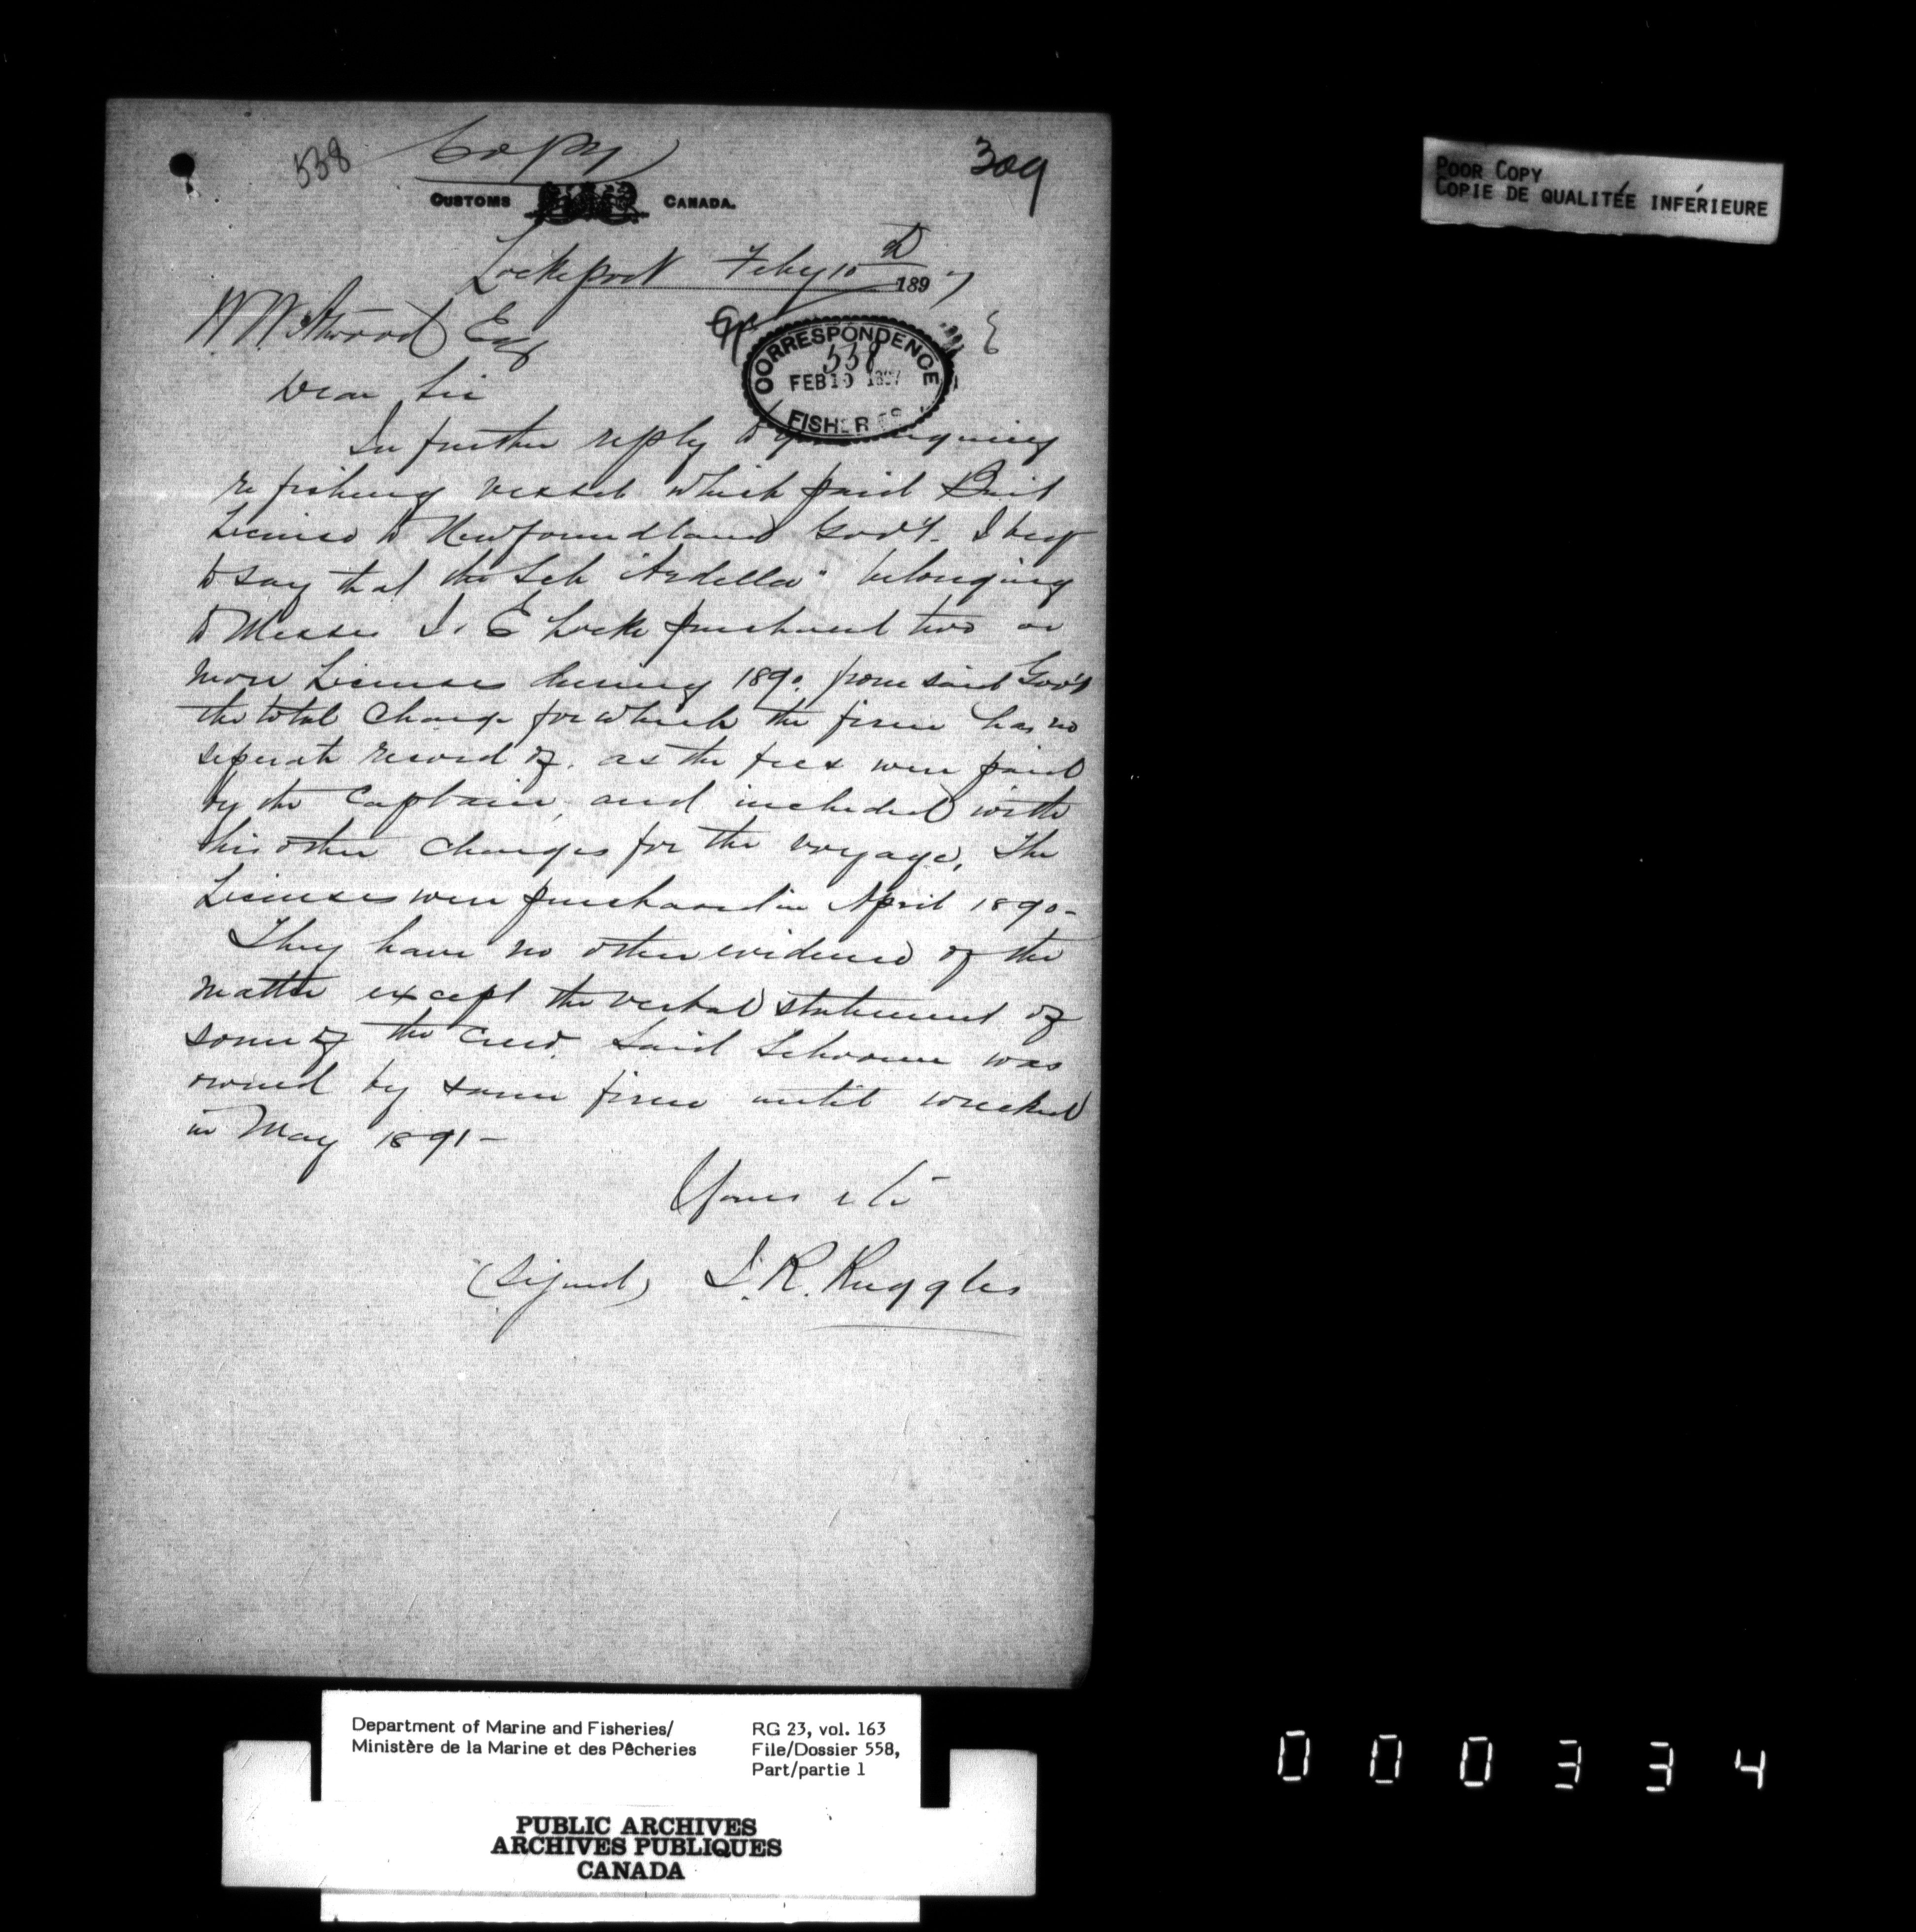 558
Copy
309
CUSTOMS CANADA.
Lockeport Feby 10th 1897
W W Atwood Esq
CORRESPONDENCE
558
FEB 1 1897
Dear Sir
In further reply to enquiry
re fishing vessels which paid Bait
License to Newfoundland Gov't. I beg
to say that the Sch "Ardella" belonging
to Messrs L. E Locke purchased two or
more Licenses during 1890, from said Gov't
the total charge for which the firm has no
seperate record of, as the fees were paid
by the Captain, and included with
his other charges for the voyage. The
Licenses were purchased in April 1890-
They have no other evidence of the
matter except the verbal statement of
some of the crew. Said Schooner was
owned by same firm until wrecked
in May 1891-
Yours &c
(Signed) R. Ruggles
POOR COPY
COPIE DE QUALITÉE INFÉRIEURE
Department of Marine and Fisheries/
Ministère de la Marine et des Pêcheries
RG 23, vol. 163
File/Dossier 558,
Part/partie 1
PUBLIC ARCHIVES
ARCHIVES PUBLIQUES
CANADA
000334